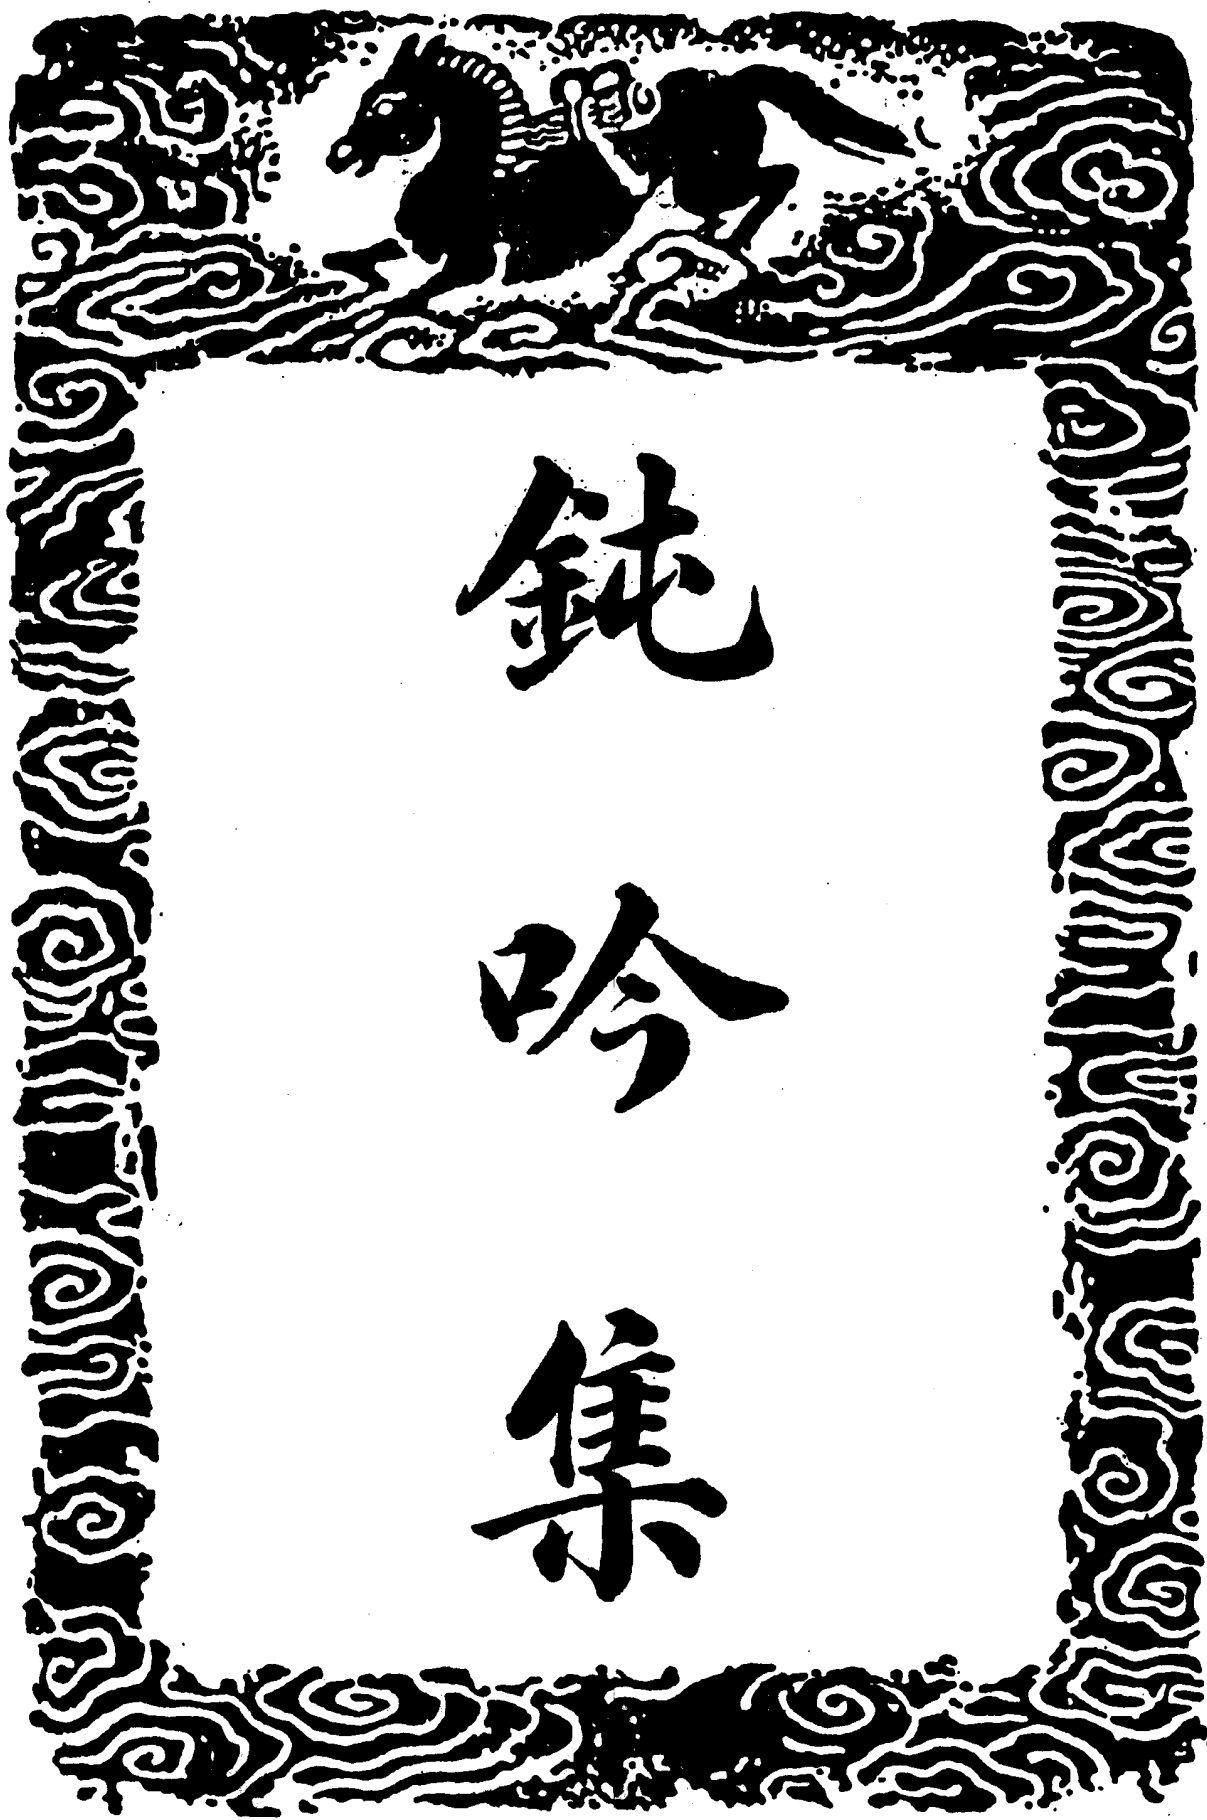 鈍吟集